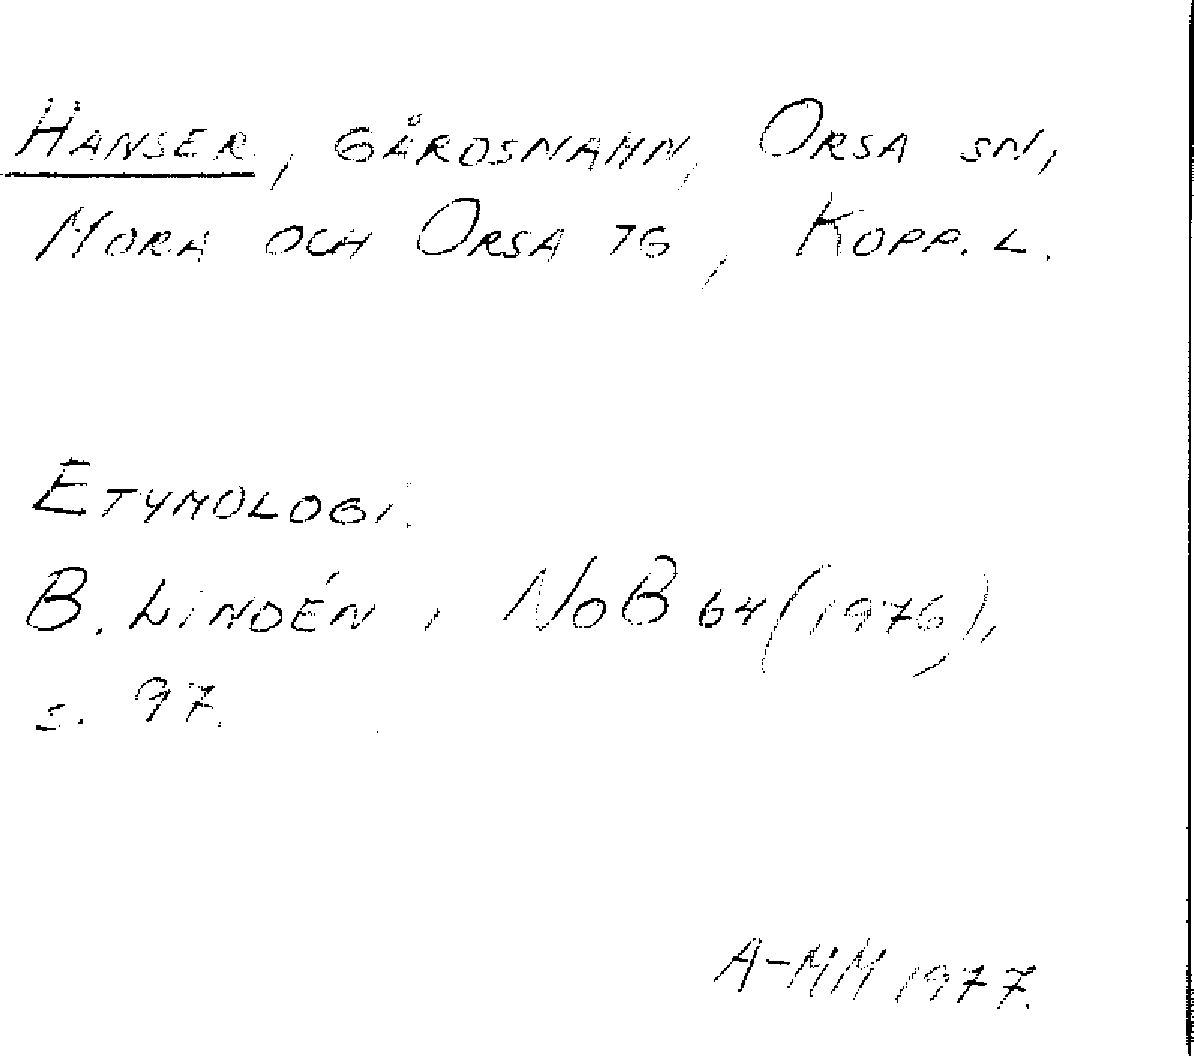 HANSER, GÅRDSNAMN, ORSA SN,
MORA OCH ORSA TG, KOPP. L.
ETYMOLOGI.
B. LINDÉN, NOB 64 (1976),
S. 97.
A-MM 1977.